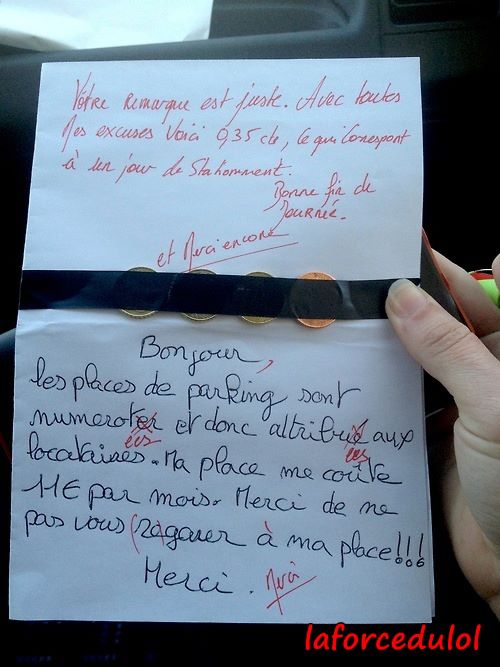 Vôtre remarque est juste. Avec toutes
Mes excuses Voici 0,35 cts, ce qui Correspont
à un jour de Stationnment.
Bonne fin de
Journée.
et Merci encore
Bonjour,
les places de parking sont
numeroter et donc attribué aux
ées ées
locataires. Ma place me coûte
11€ par mois. Merci de ne
pas vous (ra)garer à ma place!!!
Merci. Merci
laforcedulol